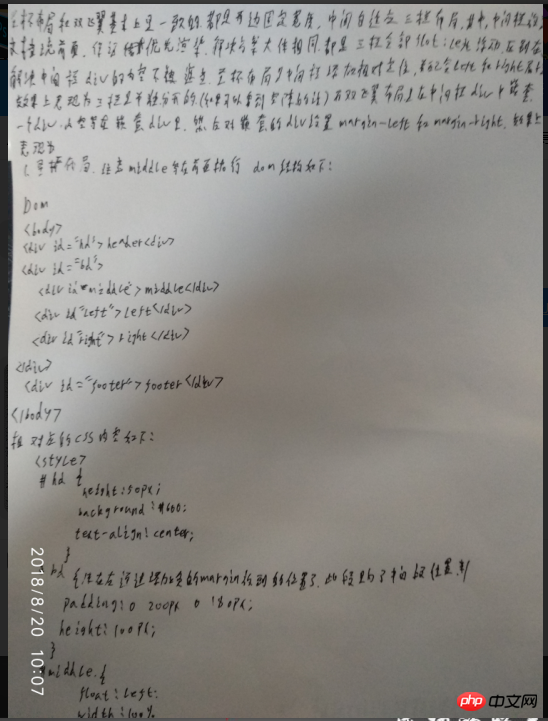 圣杯布局和双飞翼基本上是一致的,都是两边固定宽度,中间自适应三栏布局,其中,中间栏放
文档流前面,保证优先渲染。解决方案大体相同,都是三栏全部float:left浮动,区别在
解决中间栏div的内容不被遮盖,圣杯布局
效果上表现为三栏是单独分开的(如果可以看到空隙的话)而双飞翼布局是在中间栏div中嵌套
一个div,内容写在嵌套div里,然后对嵌套的div设置margin-left和margin-right,效果上
表现为
1.圣杯布局,注意middle写在前面执行 dom结构如下:
Dom
<body>
<div id="hd">header<div>
<div id="bd">
<div id="middle">middle</div>
<div id="left">left</div>
<div id="right">right</div>
</div>
<div id="footer">footer</div>
</body>
相对应的CSS内容如下:
<style>
#hd {
height:50px;
background:#666;
text-align:center;
}
bd
padding:0 200px 0 180px;
height:100px;
}
#middle {
float:left;
width:100%
2018/8/20 10:07
php 中文网